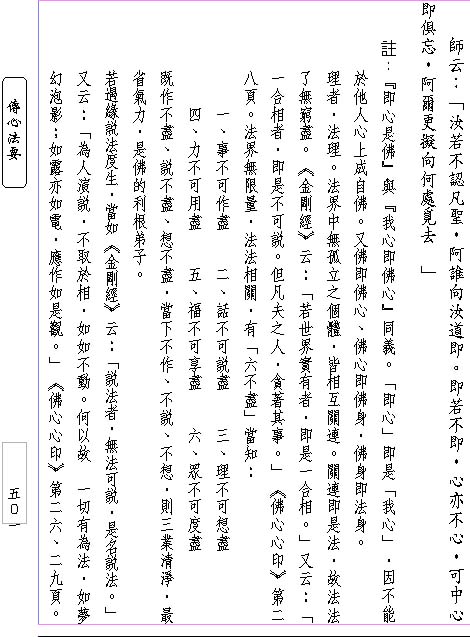 師云：「汝若不認凡聖，阿誰向汝道即。即若不即，心亦不心，可中心
即俱忘，阿爾更擬向何處覓去　」
註：『即心是佛』與『我心即佛心』同義。「即心」即是「我心」，因不能
於他人心上成自佛。又佛即佛心、佛心即佛身，佛身即法身。
理者，法理。法界中無孤立之個體，皆相互關連。關連即是法，故法法
了無窮盡。《金剛經》云：「若世界實有者，即是一合相。」又云：「
一合相者，即是不可說。但凡夫之人，貪著其事。」《佛心心印》第二
八頁。法界無限量，法法相關，有「六不盡」當知：
一、事不可作盡　二、話不可說盡　三、理不可想盡
四、力不可用盡　五、福不可享盡　六、眾不可度盡
既作不盡，說不盡、想不盡，當下不作、不說、不想，則三業清淨，最
省氣力，是佛的利根弟子。
若遇緣說法度生，當如《金剛經》云：「說法者，無法可說，是名說法。」
又云：「為人演說，不取於相，如如不動。何以故　一切有為法，如夢
幻泡影；如露亦如電，應作如是觀。」《佛心心印》第二六、二九頁。
傳心法要
五０